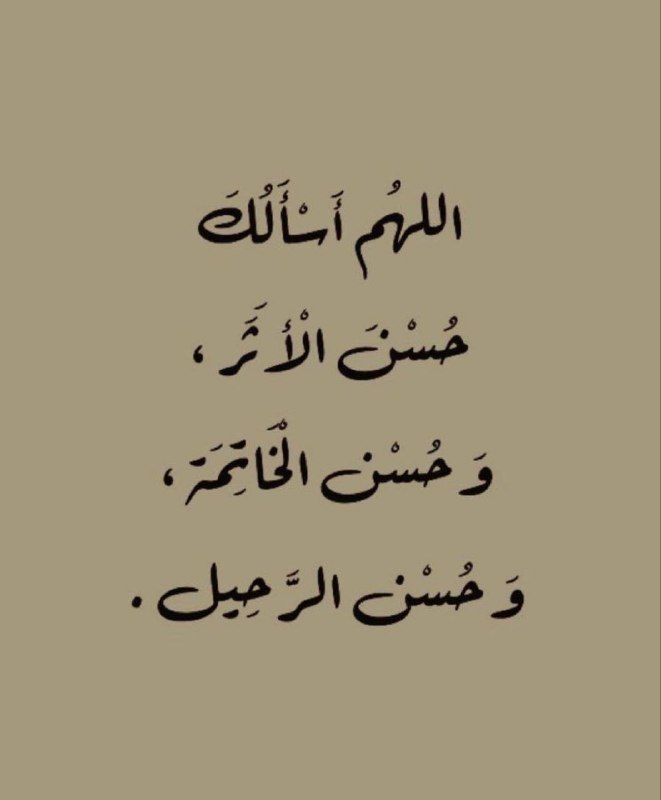 اللهُم أَسْأَلُكَ
حُسْنَ الْأَثَر ،
وَ حُسْن الْخَاتِمَة ،
وَ حُسْن الرَّحِيل .